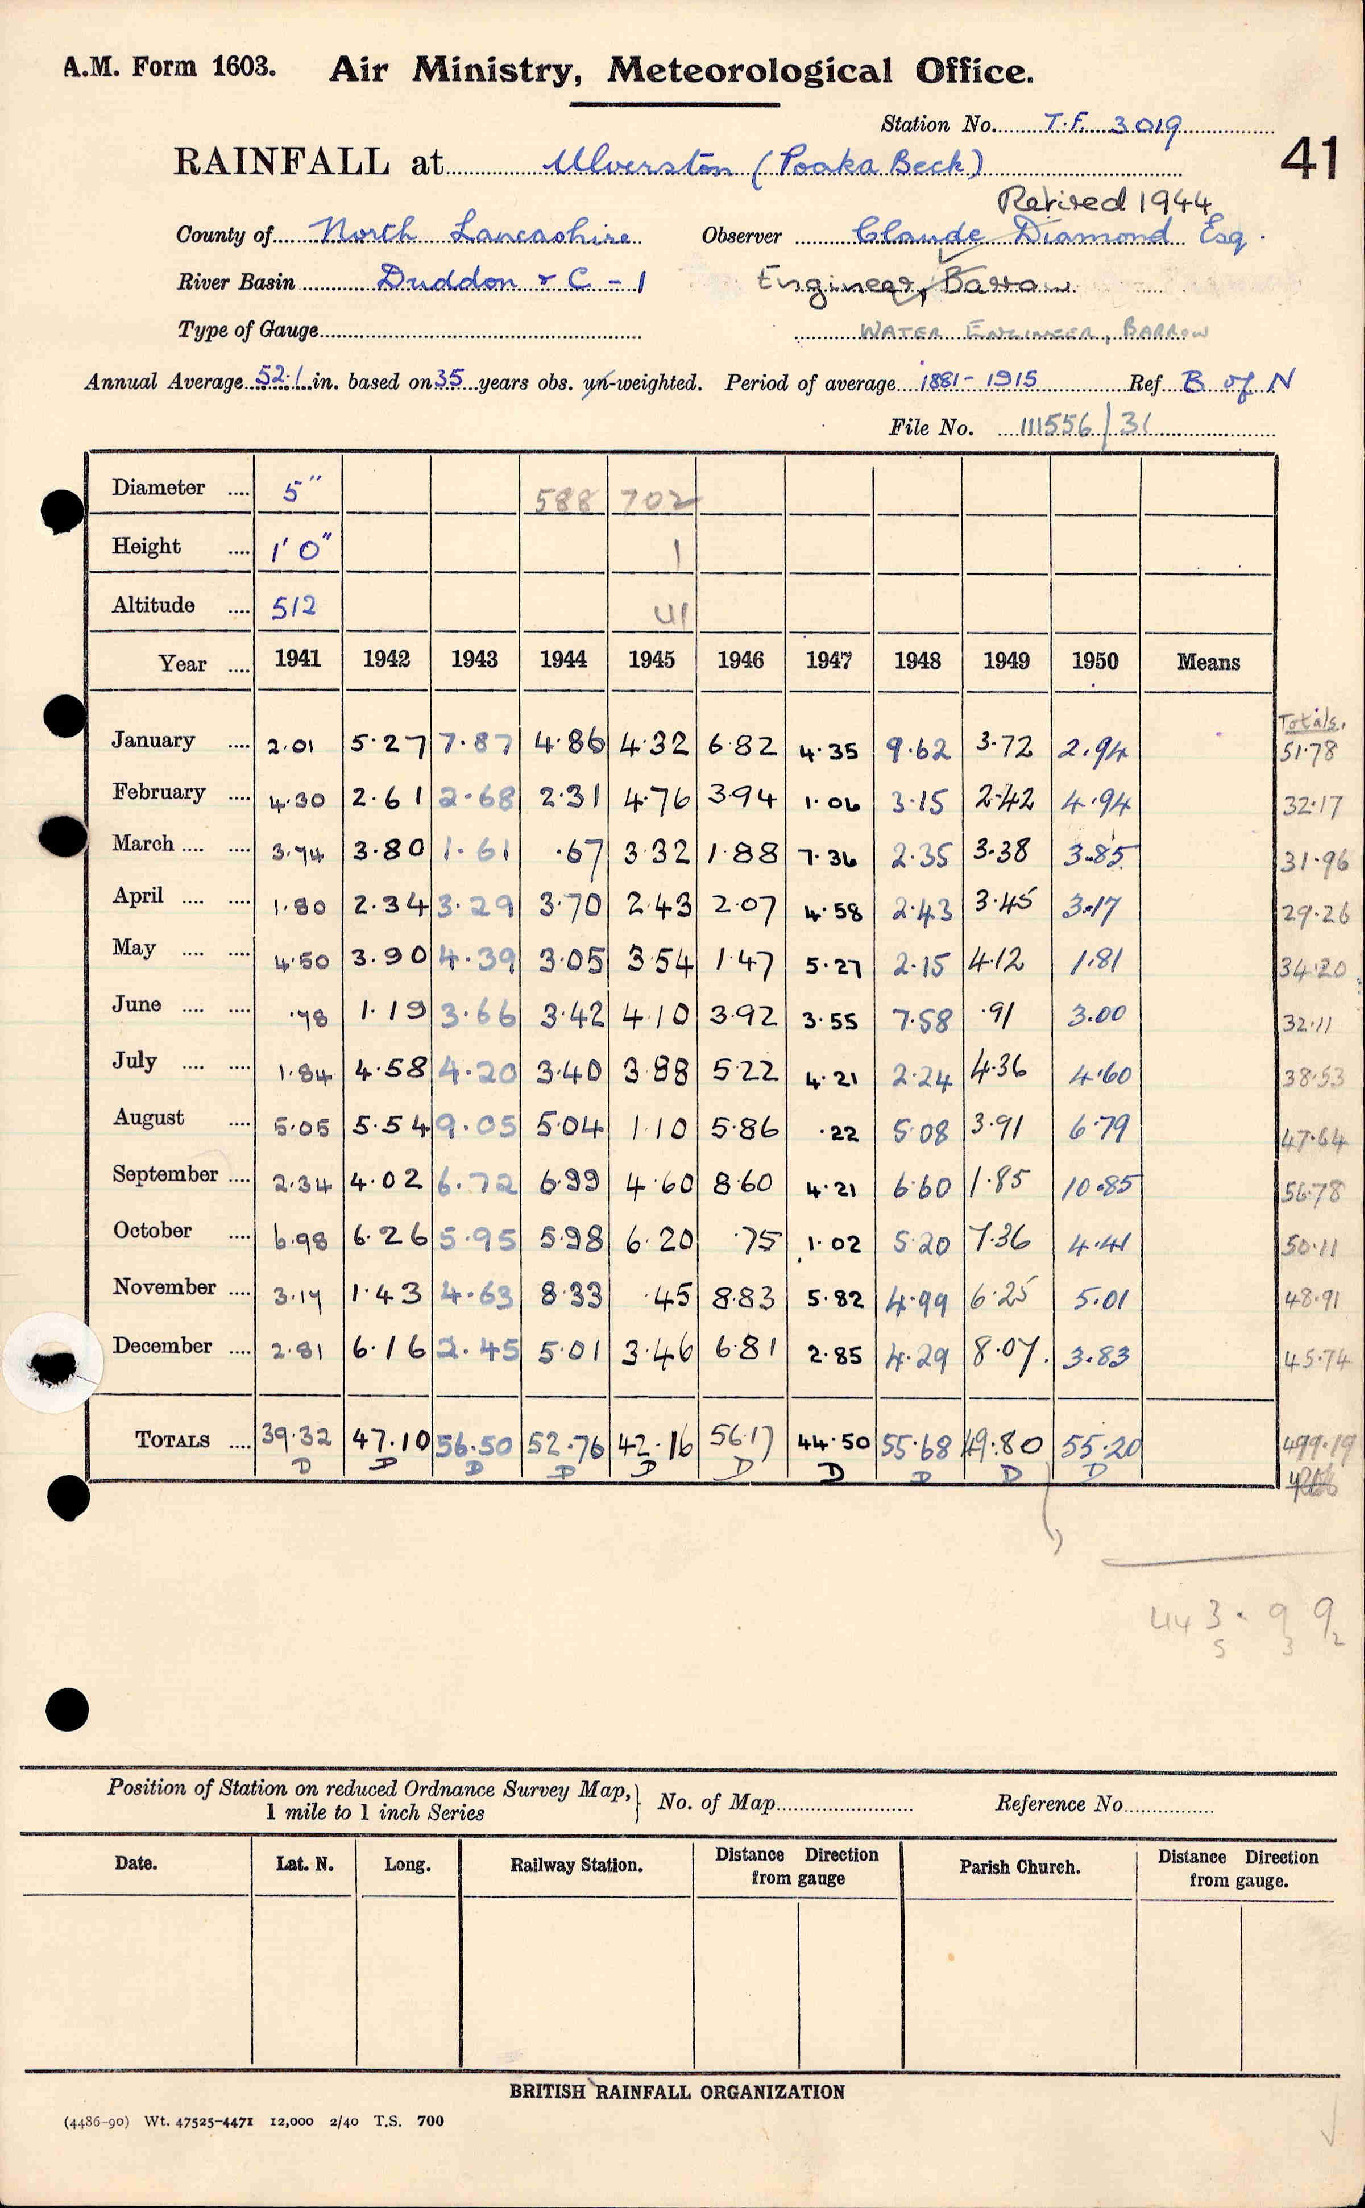 A.M. Form 1603. Air Ministry, Meteorological Office.
Station No. T.F. 3019
41
RAINFALL at Ulverston (Poaka Beck)
Retired 1944
County of North Lancashire Observer Claude Diamond Esq.
River Basin Duddon & C - 1 Engineer, Barrow
Type of Gauge WATER ENGINEER, BARROW
Annual Average 52.1 in. based on 35 years obs. un-weighted. Period of average 1881-1915 Ref. B of N
File No. 111556/31
Diameter .... 5" 588 702
Height .... 1' 0" 1
Altitude .... 512 41
Year .... 1941 1942 1943 1944 1945 1946 1947 1948 1949 1950 Means
Totals.
January .... 2.01 5.27 7.87 4.86 4.32 6.82 4.35 9.62 3.72 2.94 51.78
February .... 4.30 2.61 2.68 2.31 4.76 3.94 1.06 3.15 2.42 4.94 32.17
March .... .... 3.74 3.80 1.61 .67 3.32 1.88 7.36 2.35 3.38 3.85 31.96
April .... .... 1.80 2.34 3.29 3.70 2.43 2.07 4.58 2.43 3.45 3.17 29.26
May .... .... 4.50 3.90 4.39 3.05 3.54 1.47 5.27 2.15 4.12 1.81 34.20
June .... .... .78 1.19 3.66 3.42 4.10 3.92 3.55 7.58 .91 3.00 32.11
July .... .... 1.84 4.58 4.20 3.40 3.88 5.22 4.21 2.24 4.36 4.60 38.53
August .... 5.05 5.54 9.05 5.04 1.10 5.86 .22 5.08 3.91 6.79 47.64
September .... 2.34 4.02 6.72 6.99 4.60 8.60 4.21 6.60 1.85 10.85 56.78
October .... 6.98 6.26 5.95 5.98 6.20 .75 1.02 5.20 7.36 4.41 50.11
November .... 3.17 1.43 4.63 8.33 .45 8.83 5.82 4.99 6.25 5.01 48.91
December .... 2.81 6.16 2.45 5.01 3.46 6.81 2.85 4.29 8.07 3.83 45.74
TOTALS .... 39.32 47.10 56.50 52.76 42.16 56.17 44.50 55.68 49.80 55.20 499.19
D D D D D D D D D D
443.99
5 3 2
Position of Station on reduced Ordnance Survey Map, 1 mile to 1 inch Series } No. of Map Reference No.
Date. Lat. N. Long. Railway Station. Distance from gauge Direction Parish Church. Distance from gauge. Direction
BRITISH RAINFALL ORGANIZATION
(4486-90) Wt. 47525-4471 12,000 2/40 T.S. 700